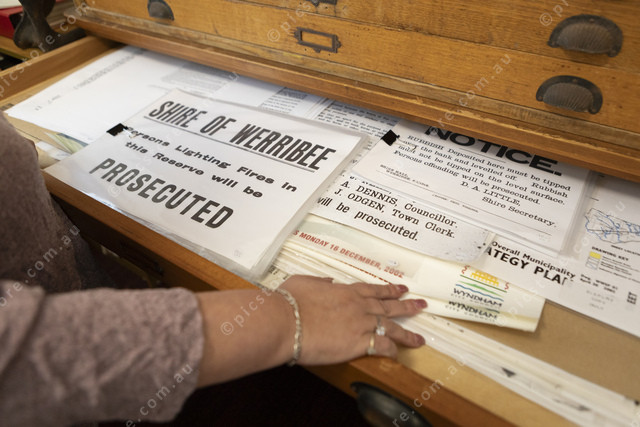 SHIRE OF WERRIBEE
Persons Lighting Fires in
this Reserve will be
PROSECUTED
NOTICE.
RUBBISH Deposited here must be tipped
the bank and levelled off. Rubbish
must not be tipped on the level surface.
Persons offending will be prosecuted.
D. A. LITTLE,
Shire Secretary.
A. DENNIS, Councillor
J. ODGEN, Town Clerk.
will be prosecuted.
MONDAY 16 DECEMBER, 2002
WYNDHAM
Overall Municipality
STRATEGY PLAN
© picstore.com.au